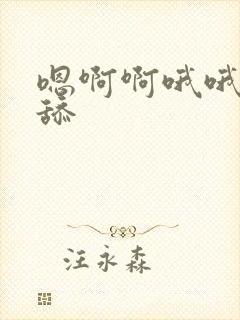 嗯啊啊哦哦
舔
汪永森